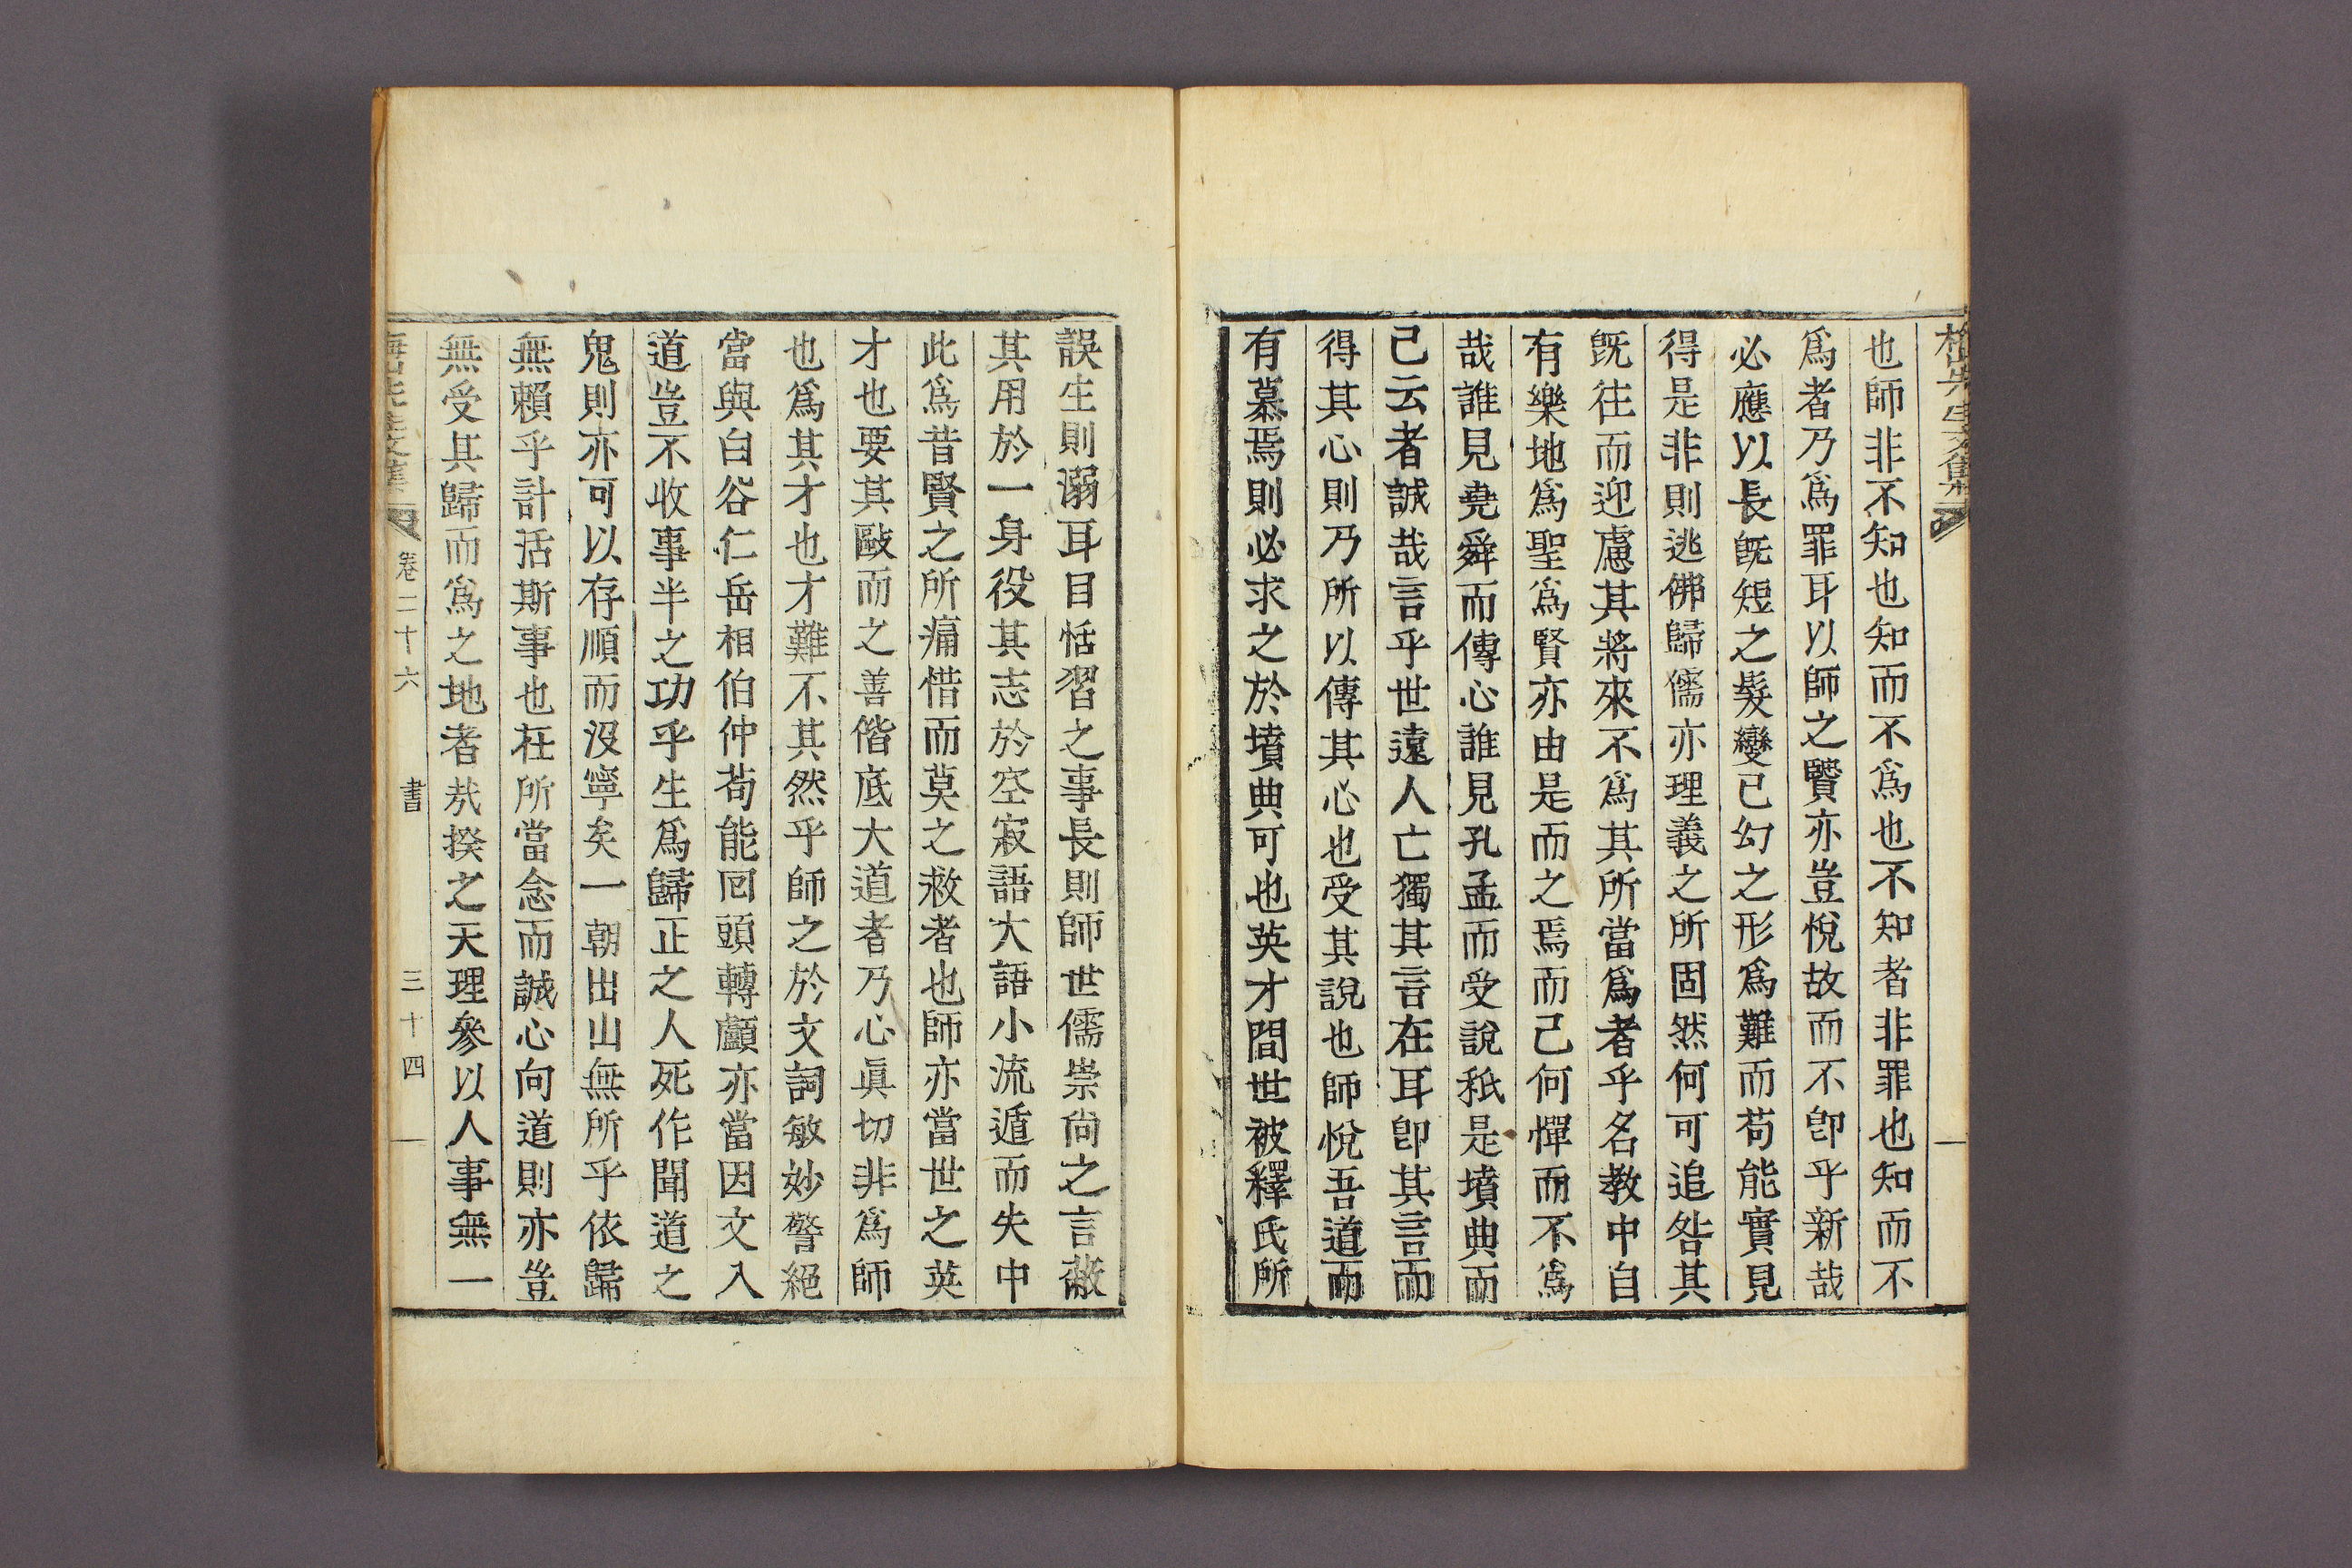 也師非不知也知而不爲也不知者非罪也知而不
爲者乃爲罪耳以師之賢亦豈悅故而不卽乎新哉
必應以長旣短之髮變已幻之形爲難而苟能實見
得是非則逃佛歸儒亦理義之所固然何可追咎其
旣往而迎慮其將來不爲其所當爲者乎名教中自
有樂地爲聖爲賢亦由是而之焉而已何憚而不爲
哉誰見堯舜而傳心誰見孔孟而受說秖是墳典而
已云者誠哉言乎世遠人亡獨其言在耳卽其言而
得其心則乃所以傳其心也受其說也師悅吾道而
有慕焉則必求之於墳典可也英才間世被釋氏所
誤生則溺耳目恬習之事長則師世儒崇尙之言蔽
其用於一身役其志於空寂語大語小流遁而失中
此爲昔賢之所痛惜而莫之救者也師亦當世之英
才也要其敺而之善偕底大道者乃心眞切非爲師
也爲其才也才難不其然乎師之於文詞敏妙警絕
當與白谷仁岳相伯仲苟能回頭轉顱亦當因文入
道豈不收事半之功乎生爲歸正之人死作聞道之
鬼則亦可以存順而沒寧矣一朝出山無所乎依歸
無賴乎計活斯事也在所當念而誠心向道則亦豈
無受其歸而爲之地者哉揆之天理參以人事無一
梅山先生文集 卷二十六 書 三十四